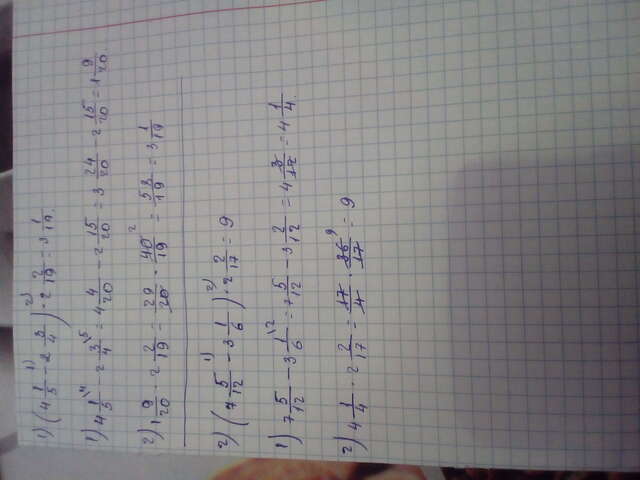 1) (4 1/5 - 2 3/4) · 2 2/19 = 3 1/19.
1) 4 1/5 - 2 3/4 = 4 4/20 - 2 15/20 = 3 24/20 - 2 15/20 = 1 9/20
2) 1 9/20 · 2 2/19 = 29/20 · 40/19 = 58/19 = 3 1/19
2) (7 5/12 - 3 1/6) · 2 2/17 = 9
1) 7 5/12 - 3 1/6 = 7 5/12 - 3 2/12 = 4 3/12 = 4 1/4.
2) 4 1/4 · 2 2/17 = 17/4 · 36/17 = 9